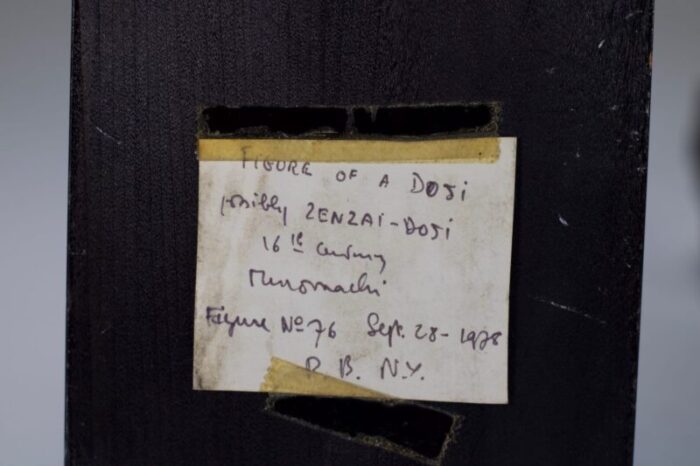 FIGURE OF A DOJI
possibly ZENZAI-DOJI
16th Century
Muromachi
Figure No 76 Sept. 28-1978
P. B. N.Y.